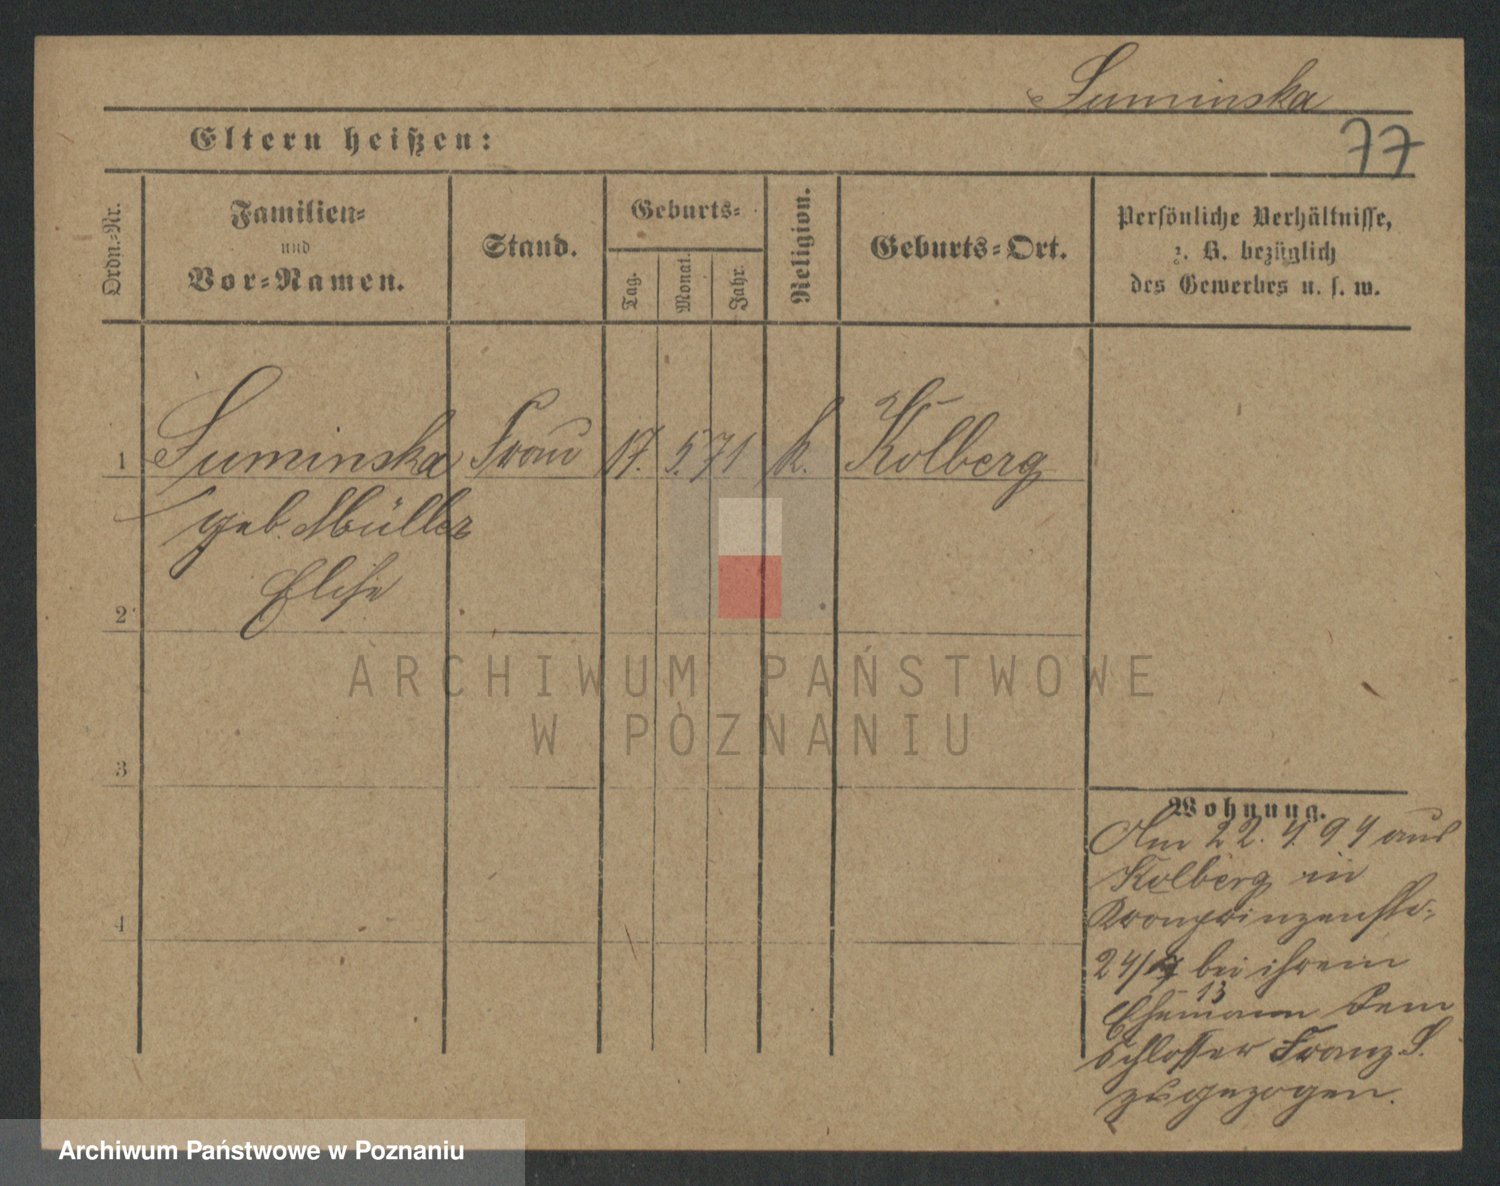 Suminska
77
Eltern heißen:
Ordn.-Nr.
Familien-
und
Vor-Namen.
Stand.
Geburts-
Tag.
Monat.
Jahr.
Religion.
Geburts-Ort.
Persönliche Verhältnisse,
z. B. bezüglich
des Gewerbes u. s. w.
1 Suminska Frau 17. 5. 71 k. Kolberg
geb. Müller
Elise
2
3
4
ARCHIWUM PAŃSTWOWE
W POZNANIU
Wohnung.
Am 22. 4. 94 aus
Kolberg in
Kronprinzenstr.
24/ bei ihrem
13
Ehemann dem
Schlosser Franz S.
zugezogen.
Archiwum Państwowe w Poznaniu